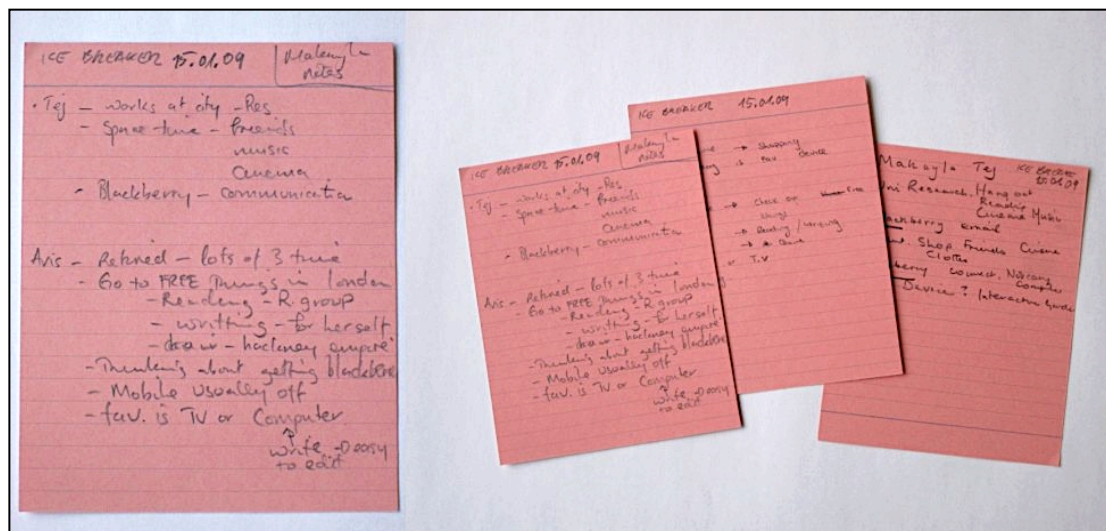 ICE BREAKER 15.01.09
Makayla
notes
• Tej – works at city – Res
– Spare time – freends
music
cinema
- Blackberry – communication
Avis – Retired – lots of 3 time
– Go to FREE Things in london
– Reading – R. group
– writting – for herself
– – hackney empire
– Thinking about getting
– Mobile usually off
– fav. is TV or Computer
↑
write → easy
to edit
ICE BREAKER 15.01.09
Makayla
notes
• Tej – works at city – Res
– Spare time – freends
music
cinema
- Blackberry – communication
Avis – Retired – lots of 3 time
– Go to FREE Things in london
– Reading – R. group
– writting – for herself
– – hackney empire
– Thinking about getting
– Mobile usually off
– fav. is TV or Computer
↑
write → easy
to edit
ICE BREAKER 15.01.09
→ Shopping
Device
→ Check out Free
things
→ Reading / writing
→
T.V
ICE
15.01.09
Makayla Tej
Research. Hang out
Reading
Cinema Music
email
Shop Friends Cuisine
Clothes
connect.
Computer
Device? Interactive